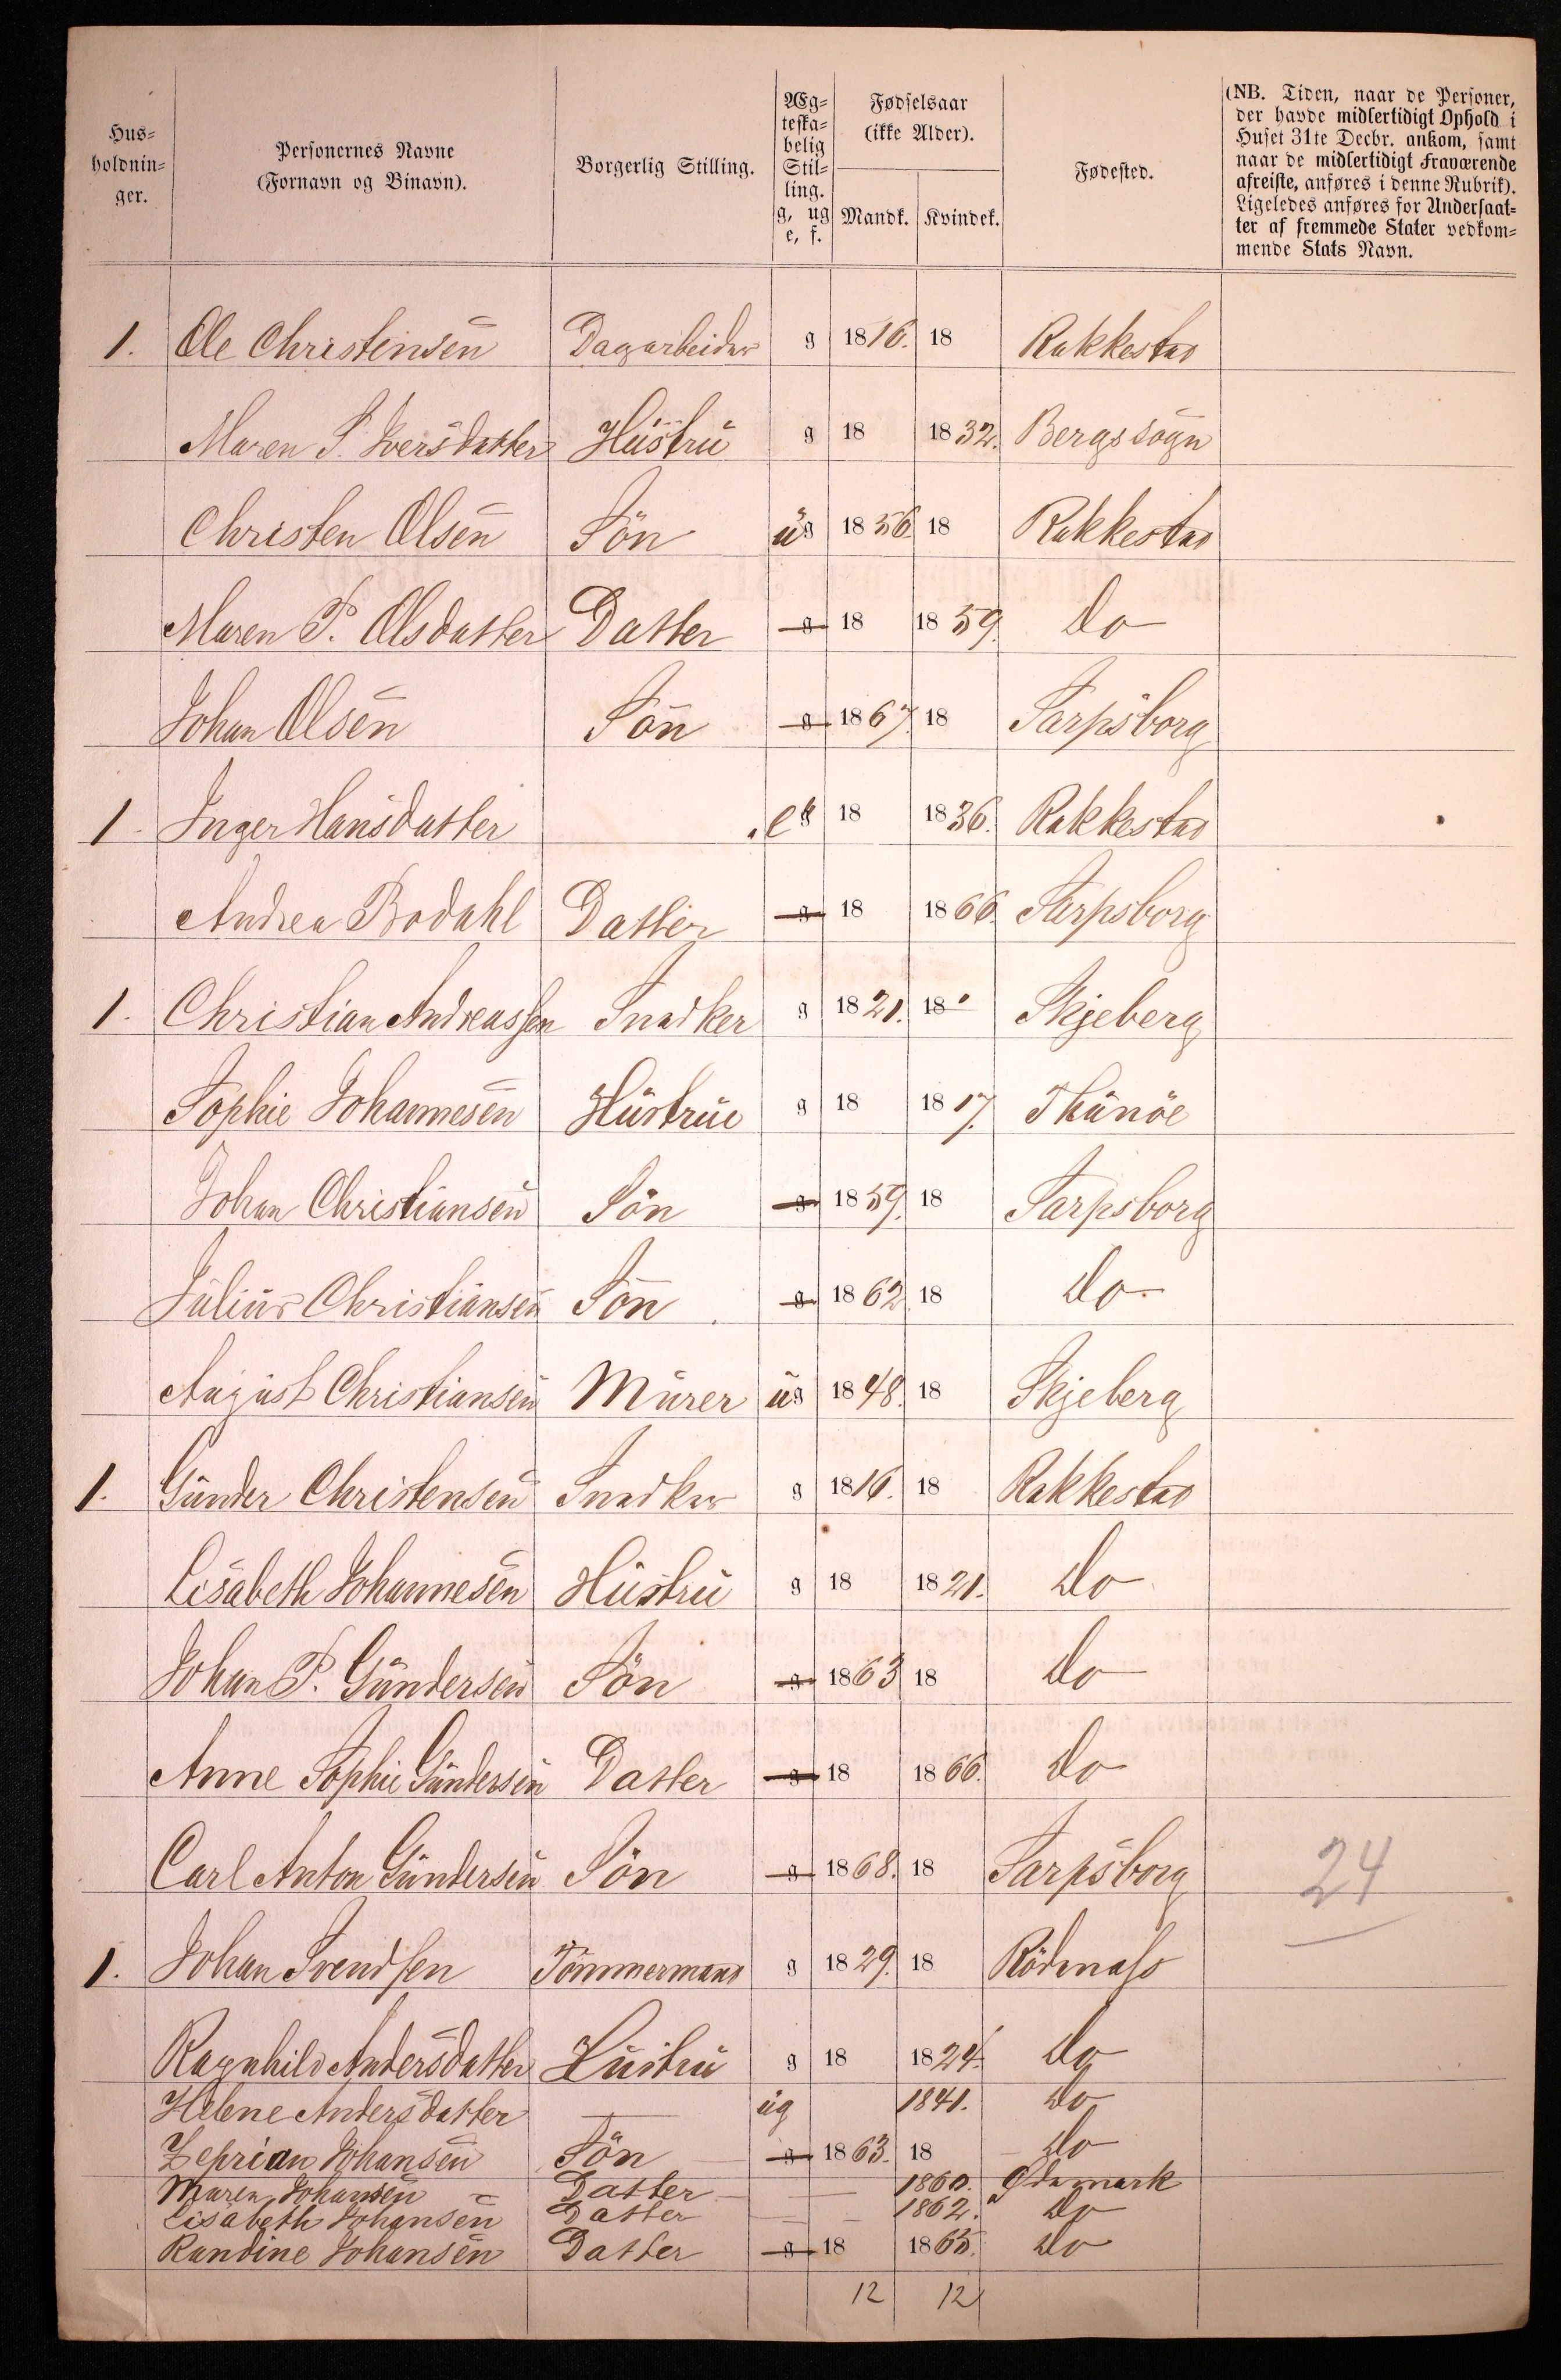 Hus-
holdnin-
ger.
Personernes Navne
(Fornavn og Binavn).
Borgerlig Stilling.
Æg-
teska-
belig
Stil-
ling.
g, ug
e, f.
Fødselsaar
(ikke Alder).
Mandk. Kvindek.
Fødested.
(NB. Tiden, naar de Personer,
der havde midlertidigt Ophold i
Huset 31te Decbr. ankom, samt
naar de midlertidigt Fraværende
afreiste, anføres i denne Rubrik).
Ligeledes anføres for Undersaat-
ter af fremmede Stater vedkom-
mende Stats Navn.
1. Ole Christensen Dagarbeider g 1816. 18 Rakkestad
Maren S. Iversdatter Hustru g 18 1832. Bergs sogn
Christen Olsen Søn ug 1856 18 Rakkestad
Maren P. Olsdatter Datter g 18 1859. Do
Johan Olsen Søn g 1867. 18 Sarpsborg
1. Inger Hansdatter e g 18 1836. Rakkestad
Andrea Bodahl Datter g 18 1866. Sarpsborg
1. Christian Andreassen Snedker g 1821. 18 Skjeberg
Sophie Johannesen Hustrue g 18 1817. Thunöe
Johan Christiansen Søn g 1859. 18 Sarpsborg
Julius Christiansen Søn g 1862 18 Do
August Christiansen Murer ug 1848. 18 Skjeberg
1. Gunder Christensen Snedker g 1816. 18 Rakkestad
Lisabeth Johannesen Hustru g 18 1821. Do
Johan P. Gundersen Søn g 1863 18 Do
Anne Sophie Gundersen Datter g 18 1866. Do
Carl Anton Gundersen Søn g 1868. 18 Sarpsborg
24
1. Johan Svendsen Tømmermand g 1829. 18 Rödenæss
Ragnhild Andersdatter Hustru g 18 1824. Do
Helene Andersdatter — ug 1841. Do
Zeprian Johansen Søn g 1863. 18 Do
Maren Johansen Datter 1860. Ødemark
Lisabeth Johansen Datter 1862. Do
Randine Johansen Datter g 18 1865. Do
12 12